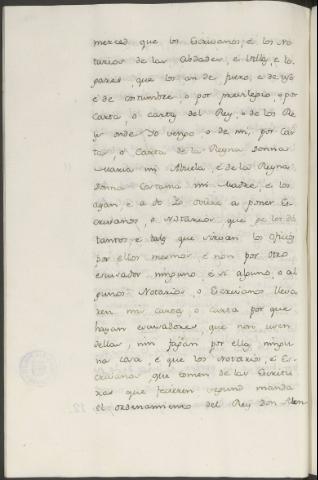 merced que los Escrivanos, e los No
tarios de las Cibdades, e Villas, e lo
gares, que los an de fuero, e de uso
e de costumbre, o por previlegio, o por
carta, o cartas del Rey, o de los Re
ys onde Yo vengo o de mi, por Car
ta, o Carta de la Reyna donna
Maria mi Abuela, e de la Reyna
donna Costanza mi Madre, e los
ayan, e a do Yo oviere a poner Es
crivanos, o Notarios que yo los dé
tantos e tales que sirvan los oficios
por ellos mesmos, e non por otro
escusador ninguno, e si alguno, o al
gunos Notarios, o Escrivanos leva
ren mi carta, o carta por que
hayan escusadores, que non usen
dellas, nin fagan por ella ningu
na cosa, e que los Notarios, e Es
crivanos, que tomen de las Escritu
ras que ficieren segund manda
el ordenamiento del Rey Don Alfon